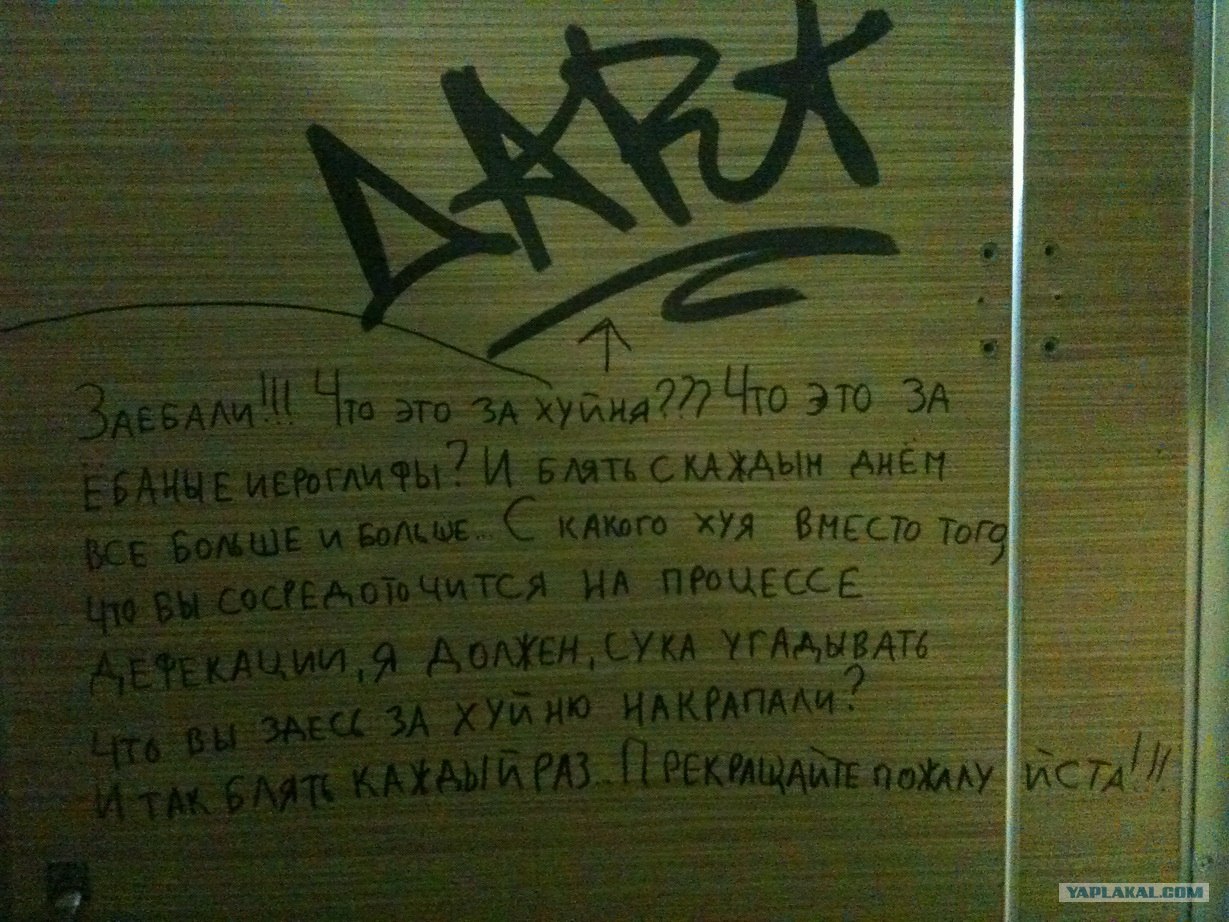 DART
ЗАЕБАЛИ!!! ЧТО ЭТО ЗА ХУЙНЯ??? ЧТО ЭТО ЗА
ЁБАНЫЕ ИЕРОГЛИФЫ? И БЛЯТЬ С КАЖДЫМ ДНЁМ
ВСЕ БОЛЬШЕ И БОЛЬШЕ... С КАКОГО ХУЯ ВМЕСТО ТОГО
ЧТО ВЫ СОСРЕДОТОЧИТСЯ НА ПРОЦЕССЕ
ДЕФЕКАЦИИ, Я ДОЛЖЕН, СУКА УГАДЫВАТЬ
ЧТО ВЫ ЗДЕСЬ ЗА ХУЙНЮ НАКРАПАЛИ?
И ТАК БЛЯТЬ КАЖДЫЙ РАЗ... ПРЕКРАЩАЙТЕ ПОЖАЛУЙСТА!!!
YAPLAKAL.COM